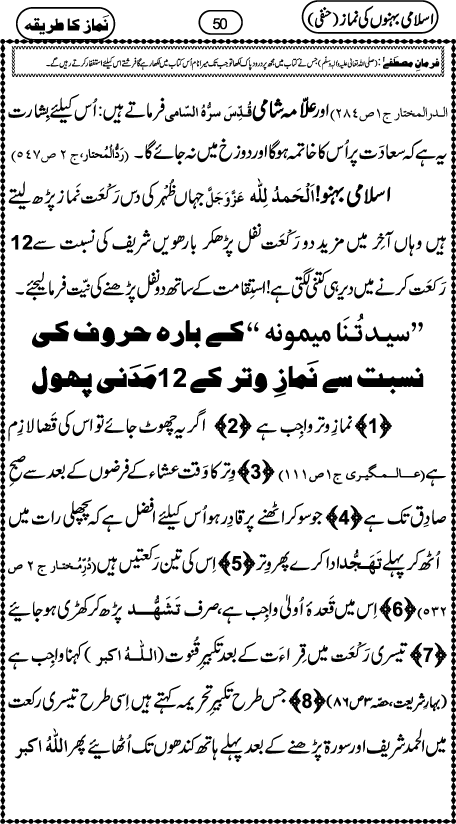 اسلامی بہنوں کی نماز (حنفی) 50 نَماز کا طریقہ
فرمانِ مصطفےٰ: (صلی اللہ تعالیٰ علیہ واٰلہٖ وسلّم) جس نے کتاب میں مجھ پر درودِ پاک لکھا تو جب تک میرا نام اُس کتاب میں لکھا رہے گا فرشتے اس کیلئے استغفار کرتے رہیں گے۔
الدرالمختار ج۱ ص۲۸۴) اور علّامہ شامی قُدِّسَ سِرُّہُ السّامی فرماتے ہیں: اُس کیلئے بِشارت
یہ ہے کہ سعادت پر اُس کا خاتمہ ہوگا اور دوزخ میں نہ جائے گا۔ (رَدُّالْمُحتار، ج ۲ ص ۵۴۷)
اسلامی بہنو! اَلْحَمدُ لِلّٰہ عَزَّوَجَلَّ جہاں ظُہر کی دس رَکْعَت نَماز پڑھ لیتے
ہیں وہاں آخِر میں مزید دو رَکْعَت نفل پڑھ کر بارھویں شریف کی نسبت سے 12
رَکعَت کرنے میں دیر ہی کتنی لگتی ہے! استِقامت کے ساتھ دو نفل پڑھنے کی نیّت فرمالیجئے۔
”سیدتُنَا میمونہ“ کے بارہ حروف کی
نسبت سے نَمازِ وتر کے 12 مَدَنی پھول
﴿1﴾ نمازِ وتر واجِب ہے ﴿2﴾ اگر یہ چھوٹ جائے تو اس کی قضا لازِم
ہے (عالمگیری ج۱ ص۱۱۱) ﴿3﴾ وِتر کا وَقت عشاء کے فرضوں کے بعد سے صبحِ
صادِق تک ہے ﴿4﴾ جو سو کر اٹھنے پر قادِر ہو اُس کیلئے افضل ہے کہ پچھلی رات میں
اُٹھ کر پہلے تَہَجُّد ادا کرے پھر وِتر ﴿5﴾ اِس کی تین رَکعتیں ہیں (دُرِّمُختار ج ۲ ص
۵۳۲) ﴿6﴾ اِس میں قَعدۂ اُولیٰ واجِب ہے، صرف تَشَہُّد پڑھ کر کھڑی ہوجائیے
﴿7﴾ تیسری رَکْعَت میں قِراءَت کے بعد تکبیرِ قُنوت (اَللہُ اکبر) کہنا واجِب ہے
(بہارِ شریعت، حصّہ ۳ ص ۸۶) ﴿8﴾ جس طرح تکبیرِ تحریمہ کہتے ہیں اِسی طرح تیسری رکعت
میں الحمد شریف اور سورۃ پڑھنے کے بعد پہلے ہاتھ کندھوں تک اُٹھائیے پھر اَللہُ اکبر